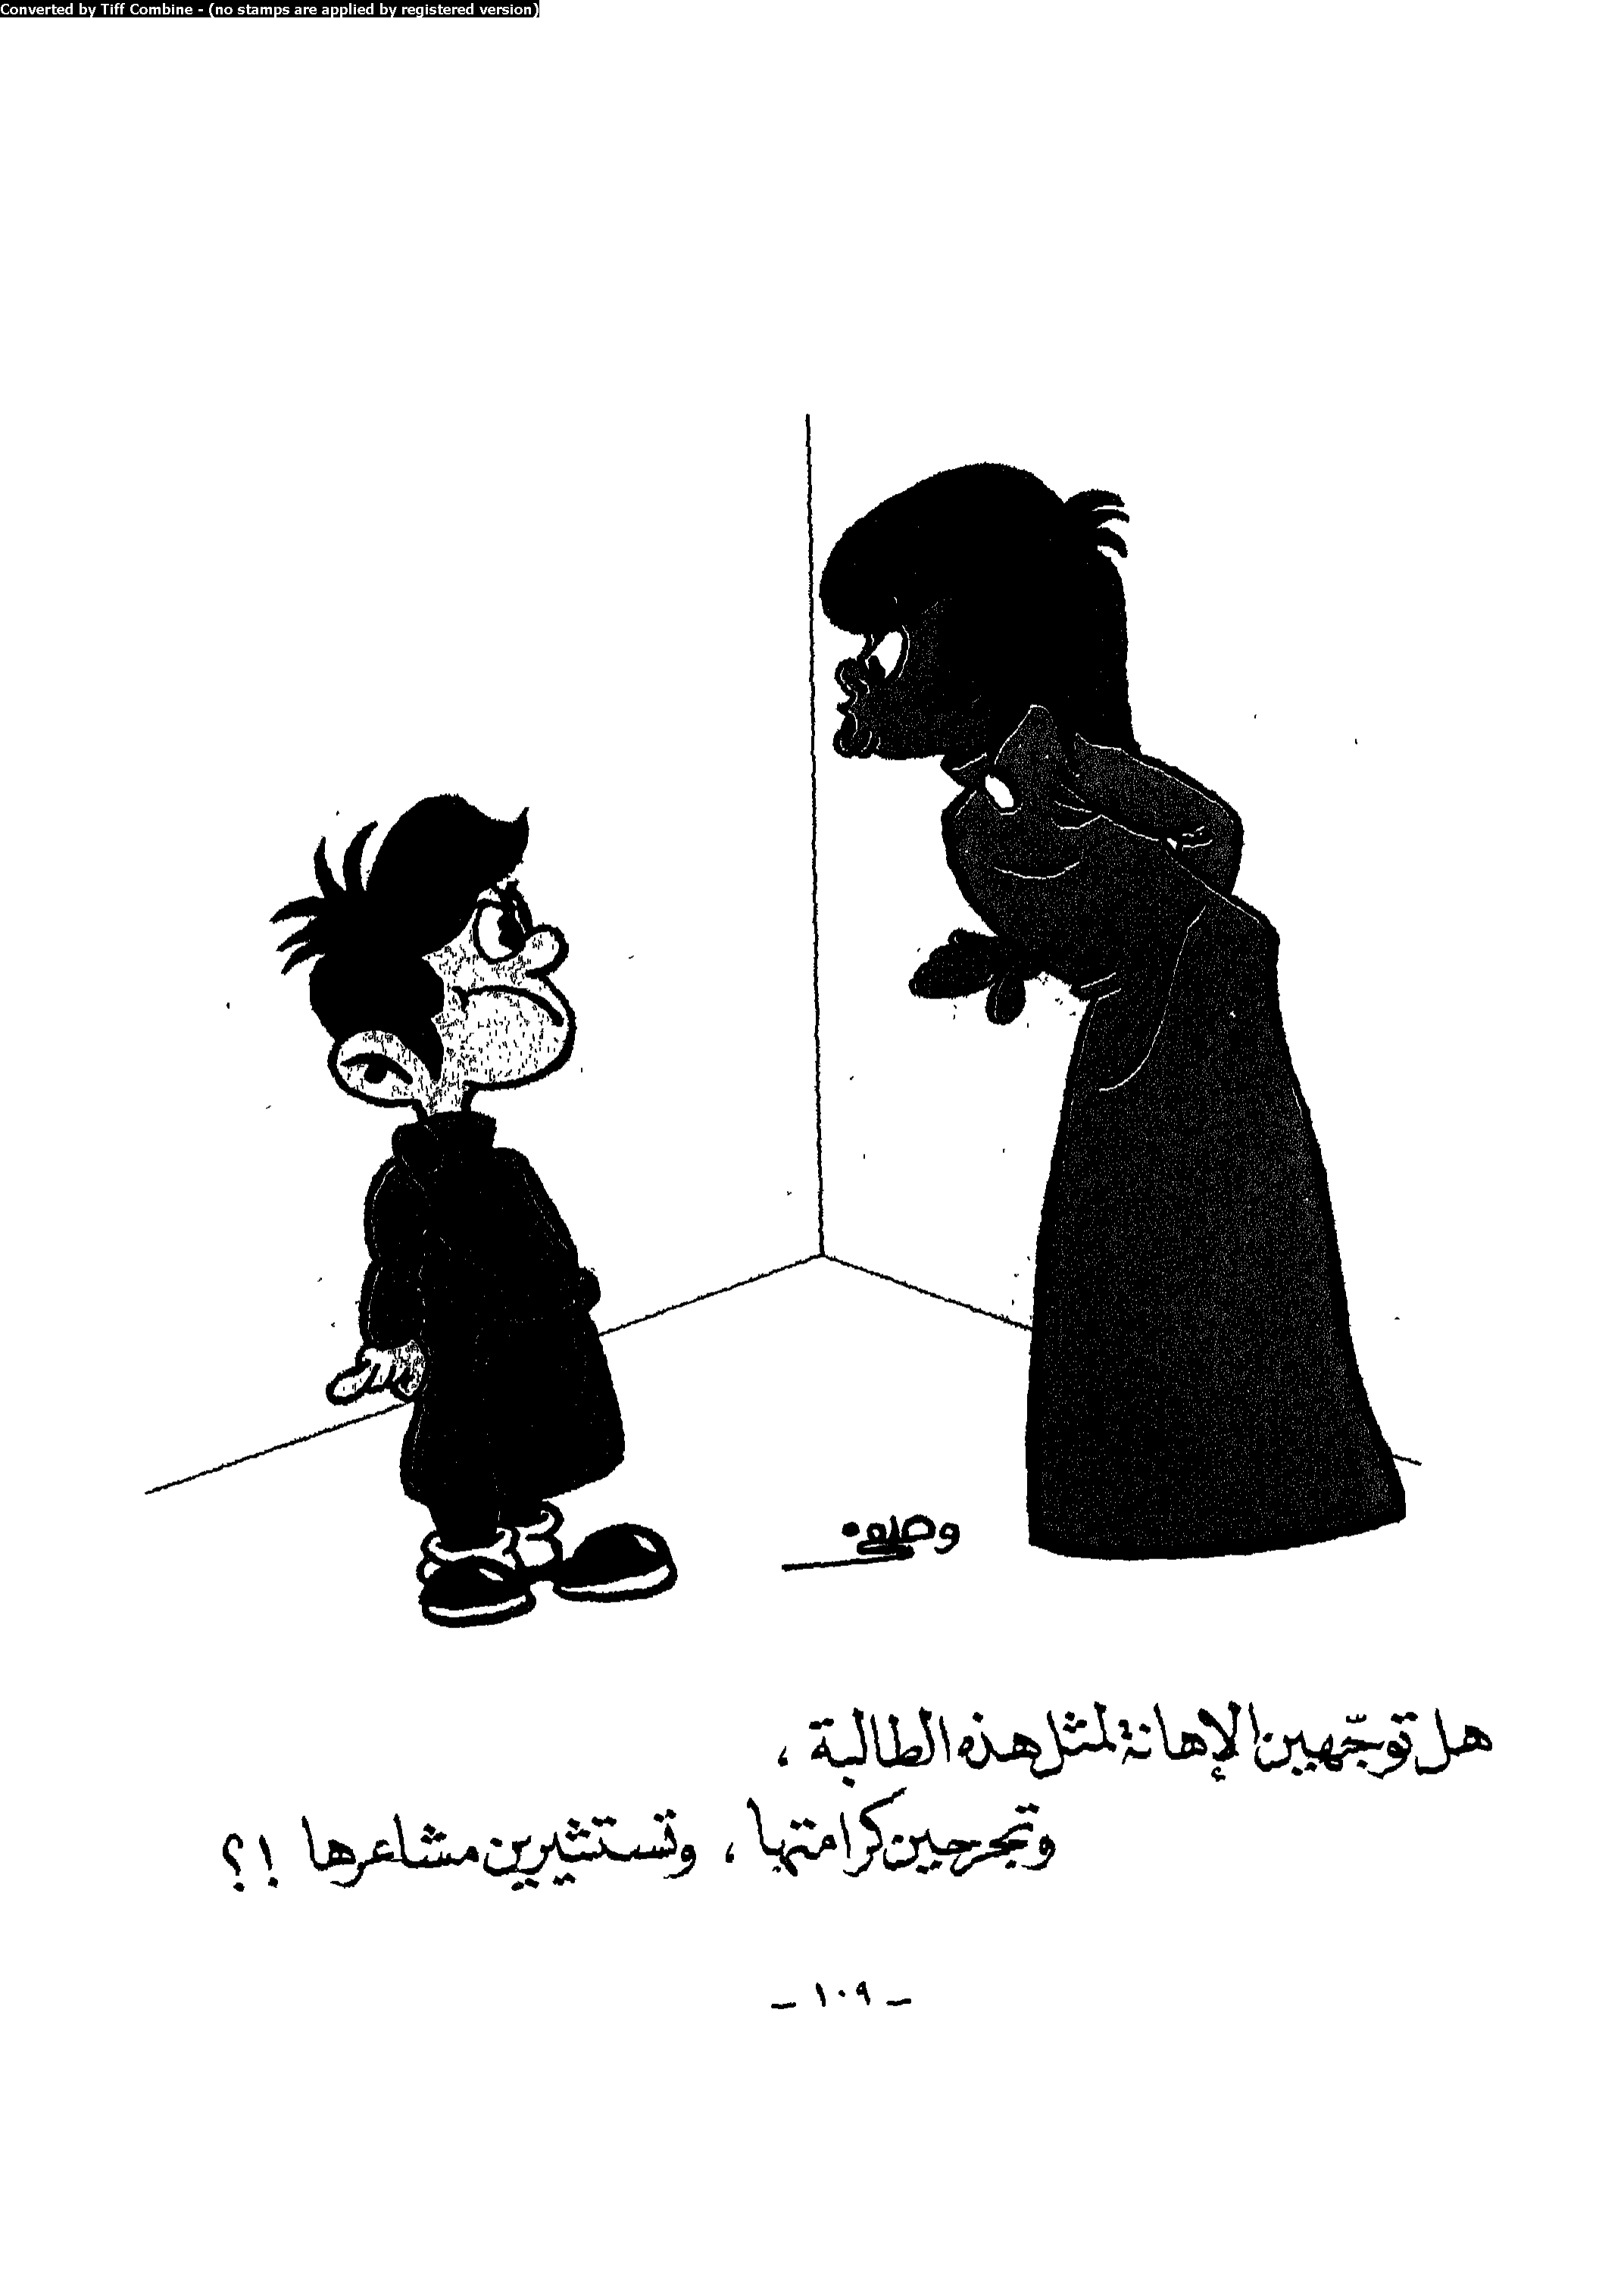 Converted by Tiff Combine - (no stamps are applied by registered version)
هل توجّهين الإهانة لمثل هذه الطالبة ،
وتجرحين كرامتها ، وتستثيرين مشاعرها !؟
- ١٠٩ -